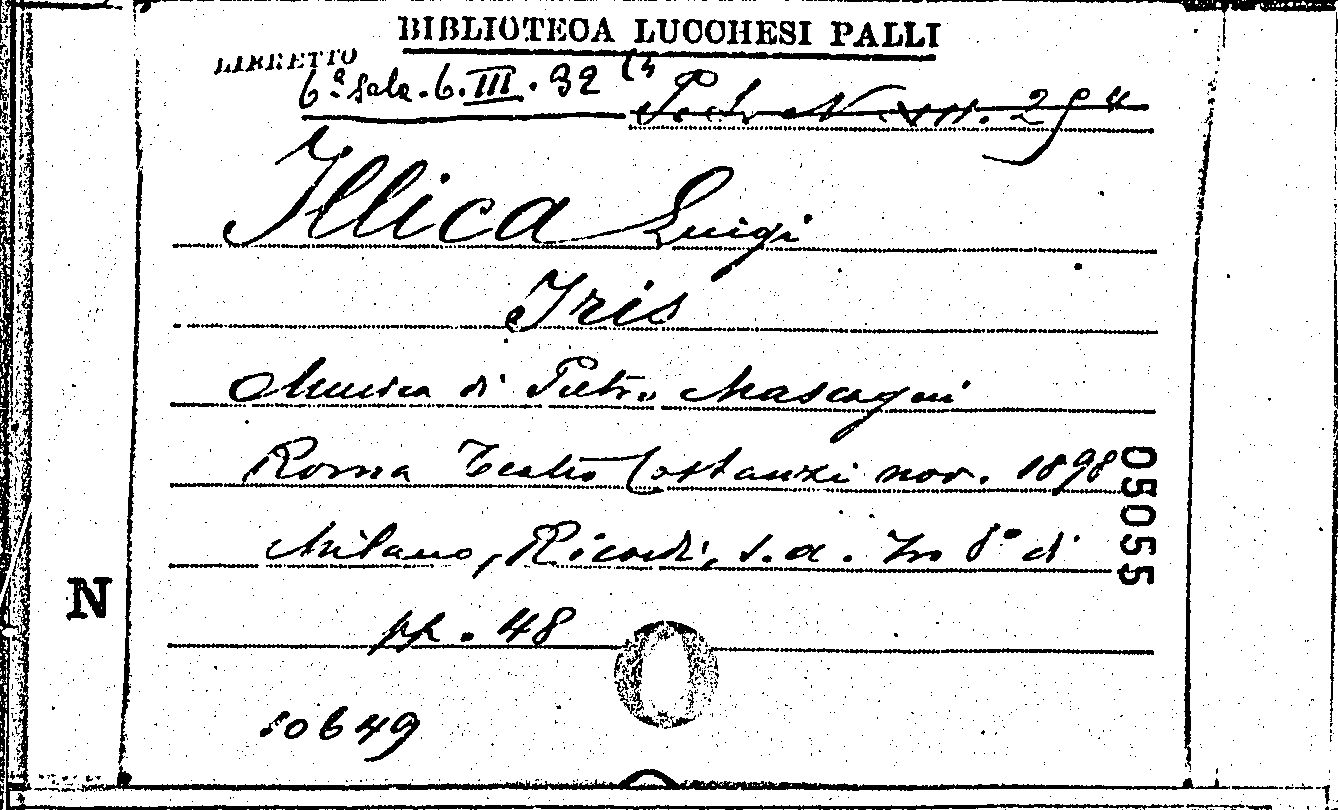 BIBLIOTECA LUCCHESI PALLI
LIBRETTO
6ª Sala. 6. III. 32 (4
Illica Luigi
Iris
Musica di Pietro Mascagni
Roma Teatro Costanzi nov. 1898
Milano, Ricordi, s. a. In 8° di
pp. 48
10649
05055
N